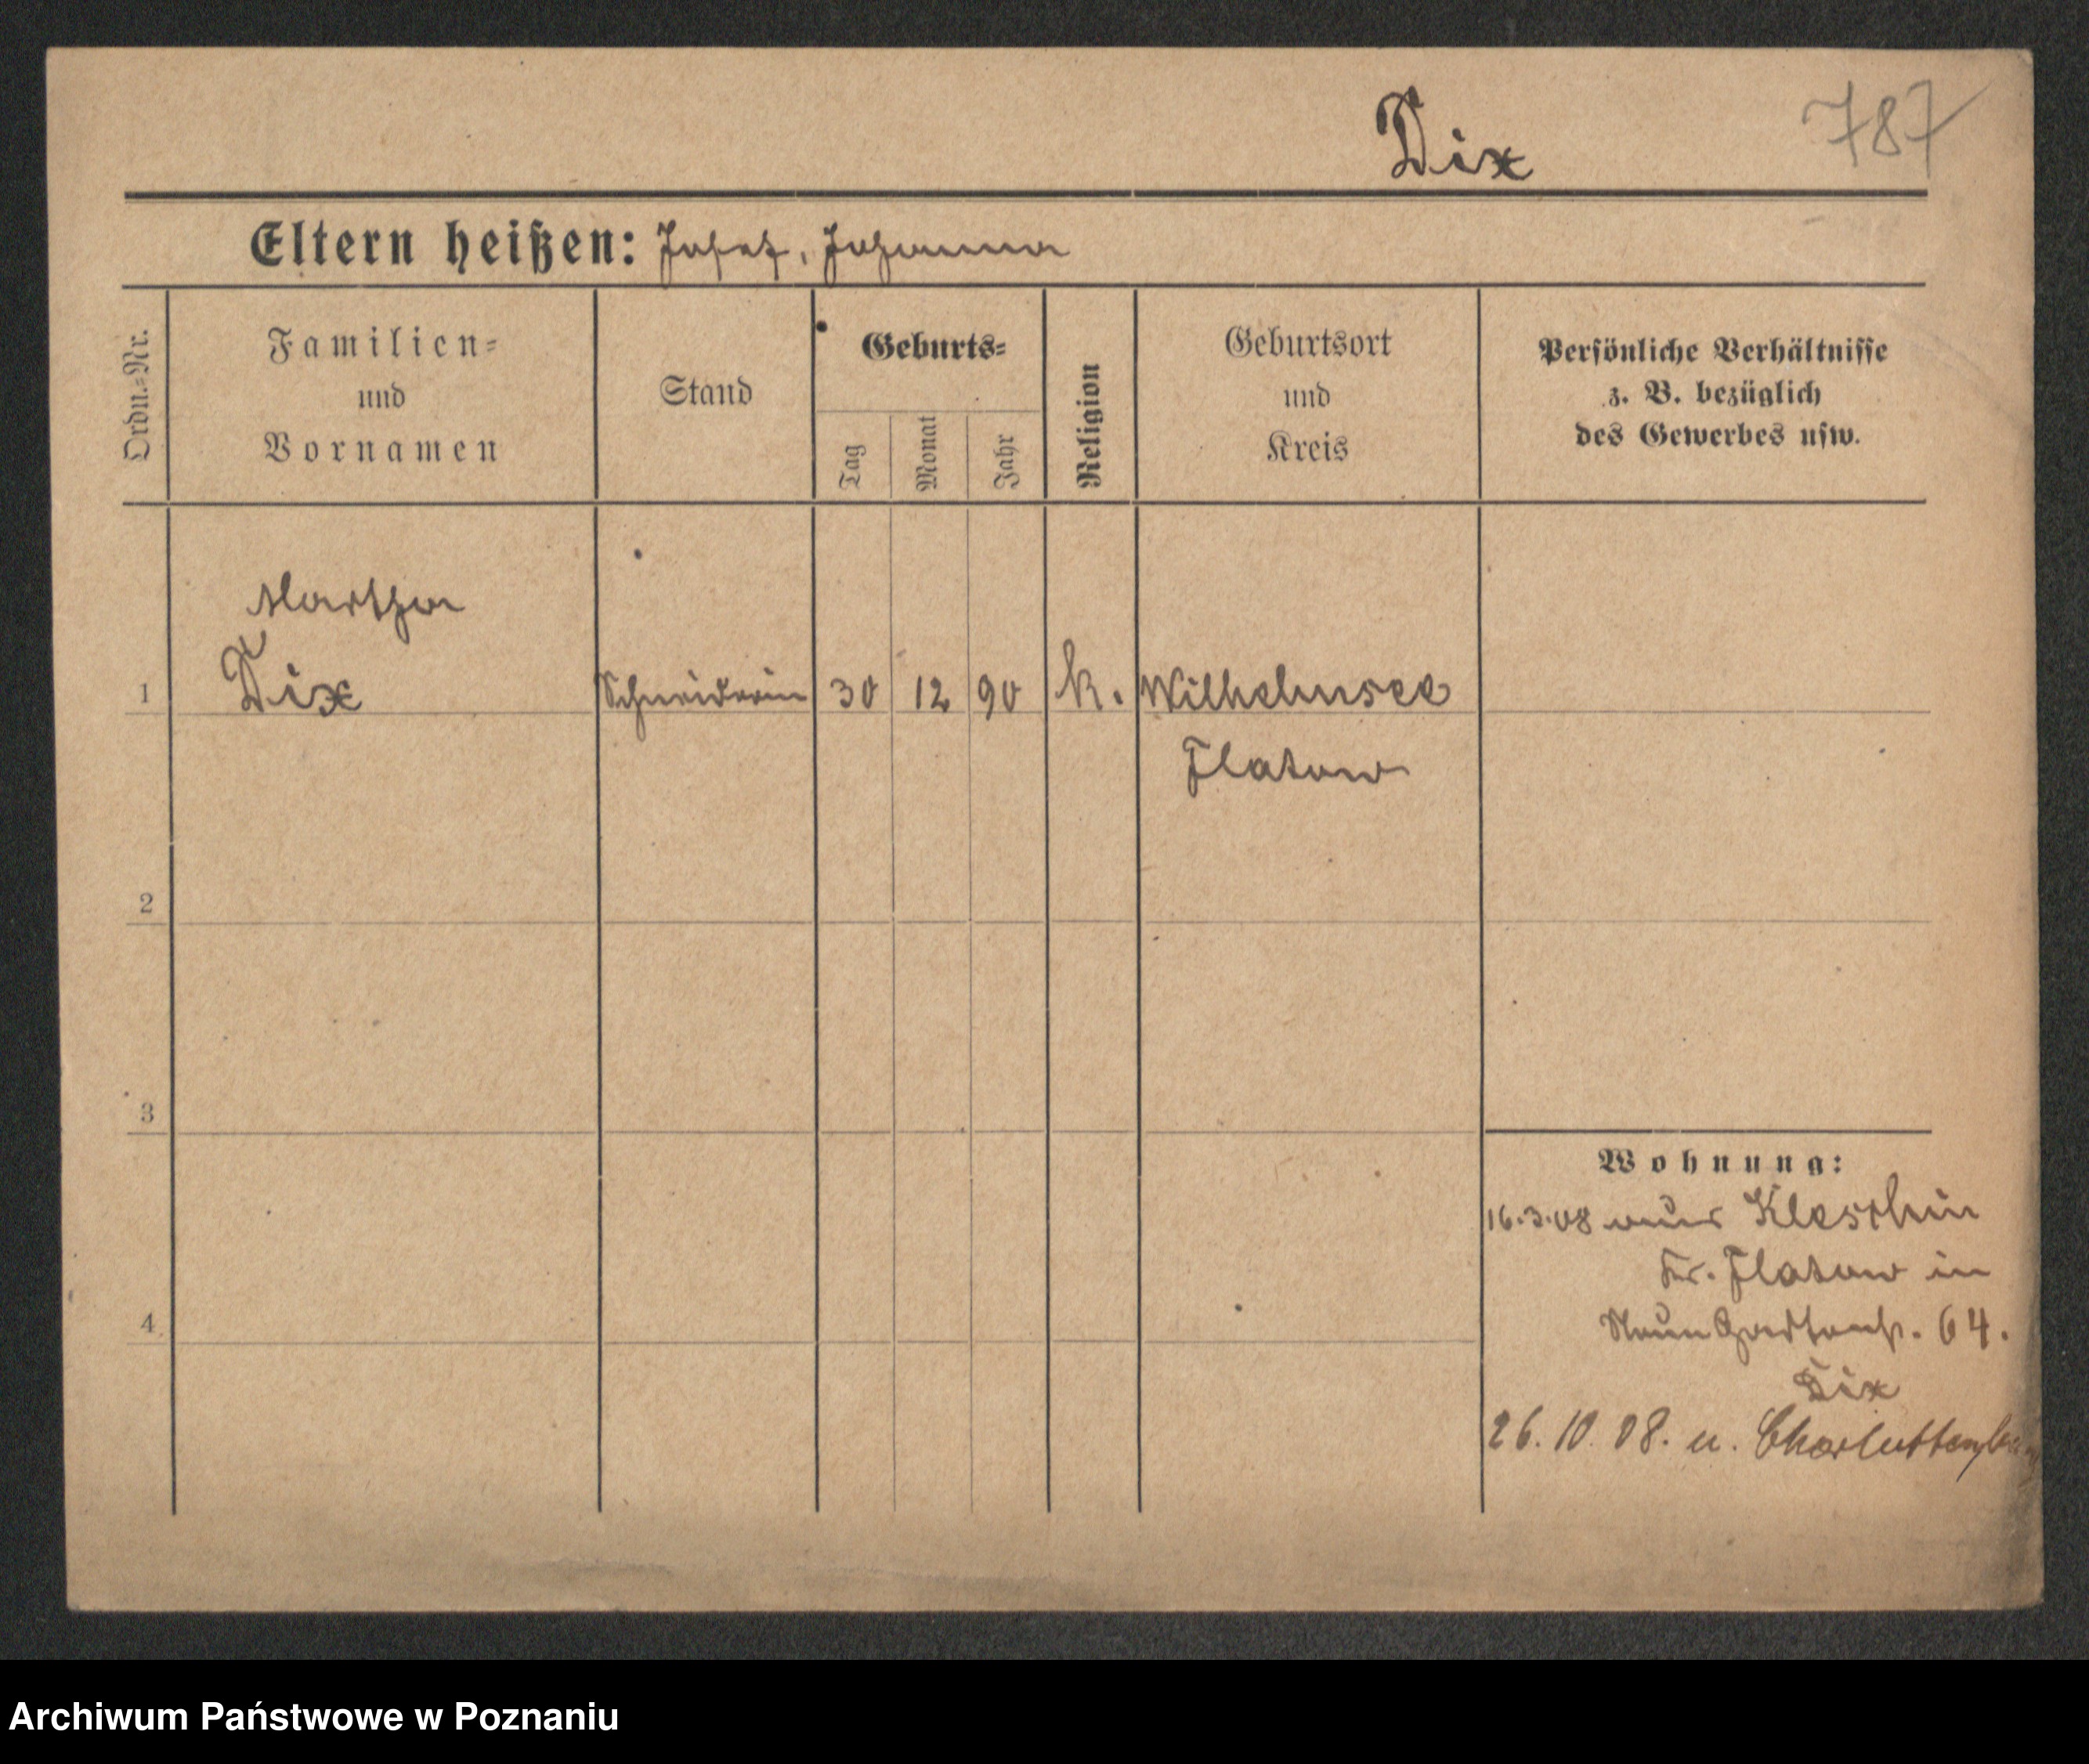 Dix
787
Eltern heißen: Josef, Johanna
Ordn.=Nr.
Familien=
und
Vornamen
Stand
Geburts=
Tag
Monat
Jahr
Religion
Geburtsort
und
Kreis
Persönliche Verhältnisse
z. B. bezüglich
des Gewerbes usw.
Martha
1 Dix Schneiderin 30 12 90 k. Wilhelmsee
Flatow
2
3
4
Wohnung:
16.3.08 aus
Kr. Flatow in
64.
Dix
26. 10. 08. n. Charlottenburg
Archiwum Państwowe w Poznaniu